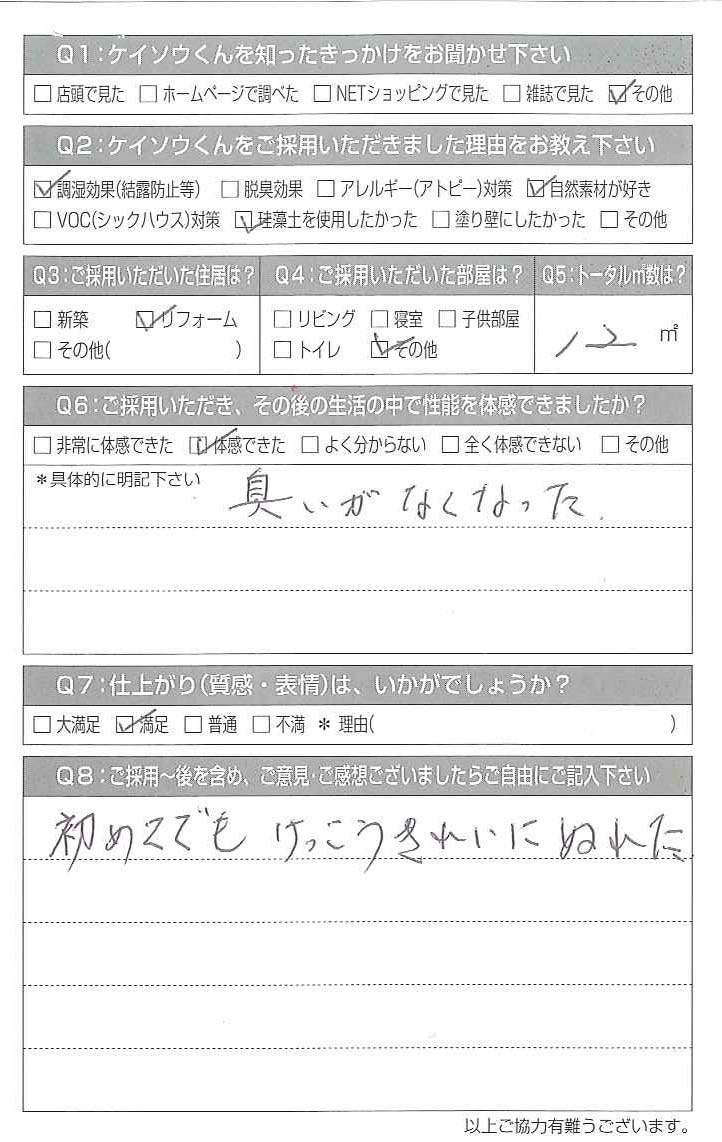 Q1:ケイソウくんを知ったきっかけをお聞かせ下さい
□店頭で見た □ホームページで調べた □NETショッピングで見た □雑誌で見た ☑その他
Q2:ケイソウくんをご採用いただきました理由をお教え下さい
☑調湿効果(結露防止等) □脱臭効果 □アレルギー(アトピー)対策 ☑自然素材が好き
□VOC(シックハウス)対策 ☑珪藻土を使用したかった □塗り壁にしたかった □その他
Q3:ご採用いただいた住居は? Q4:ご採用いただいた部屋は? Q5:トータル㎡数は?
□新築 ☑リフォーム □リビング □寝室 □子供部屋 12 ㎡
□その他( ) □トイレ ☑その他
Q6:ご採用いただき、その後の生活の中で性能を体感できましたか?
□非常に体感できた ☑体感できた □よく分からない □全く体感できない □その他
*具体的に明記下さい 臭いがなくなった.
Q7:仕上がり(質感・表情)は、いかがでしょうか?
□大満足 ☑満足 □普通 □不満 *理由( )
Q8:ご採用〜後を含め、ご意見・ご感想ございましたらご自由にご記入下さい
初めてでも けっこうきれいにぬれた
以上ご協力有難うございます。